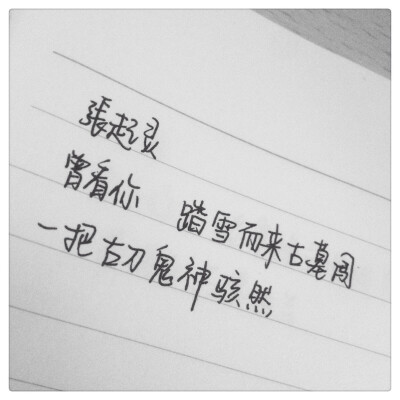 張起灵
曾看你 踏雪而来古墓闯
一把古刀鬼神骇然